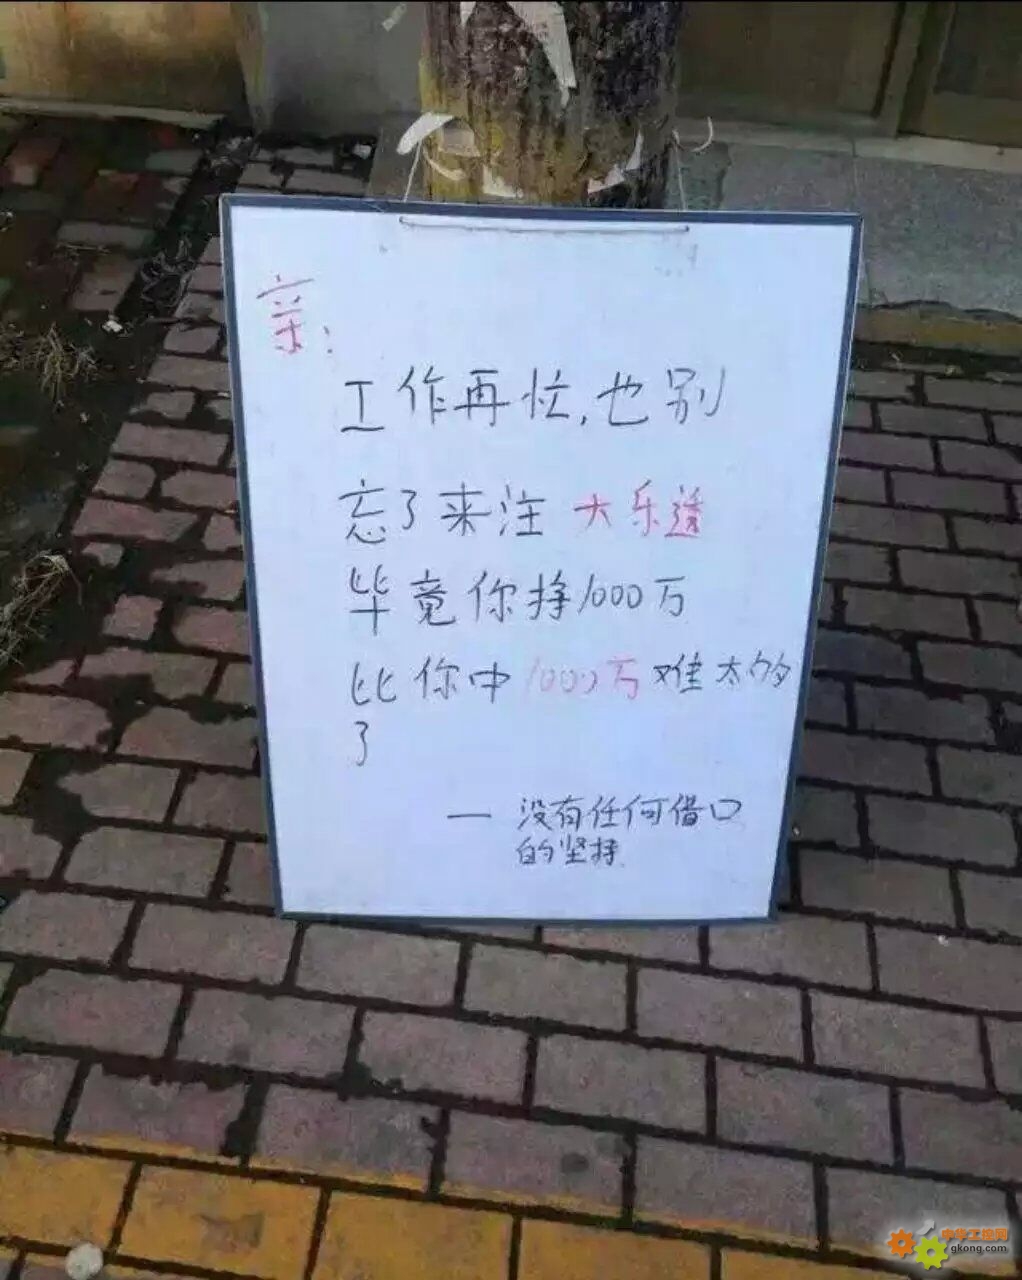 亲:
工作再忙,也别
忘了来注 大乐透
毕竟你挣1000万
比你中1000万难太多
了
— 没有任何借口
的坚持
中华工控网
gkong.com